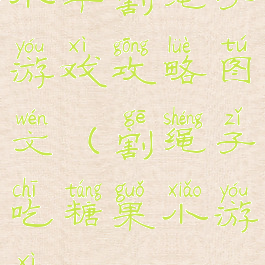 yóu xì gōng luè tú
游戏攻略图
wén gē shéng zǐ
文（割绳子
chī táng guǒ xiǎo yóu
吃糖果小游
xì